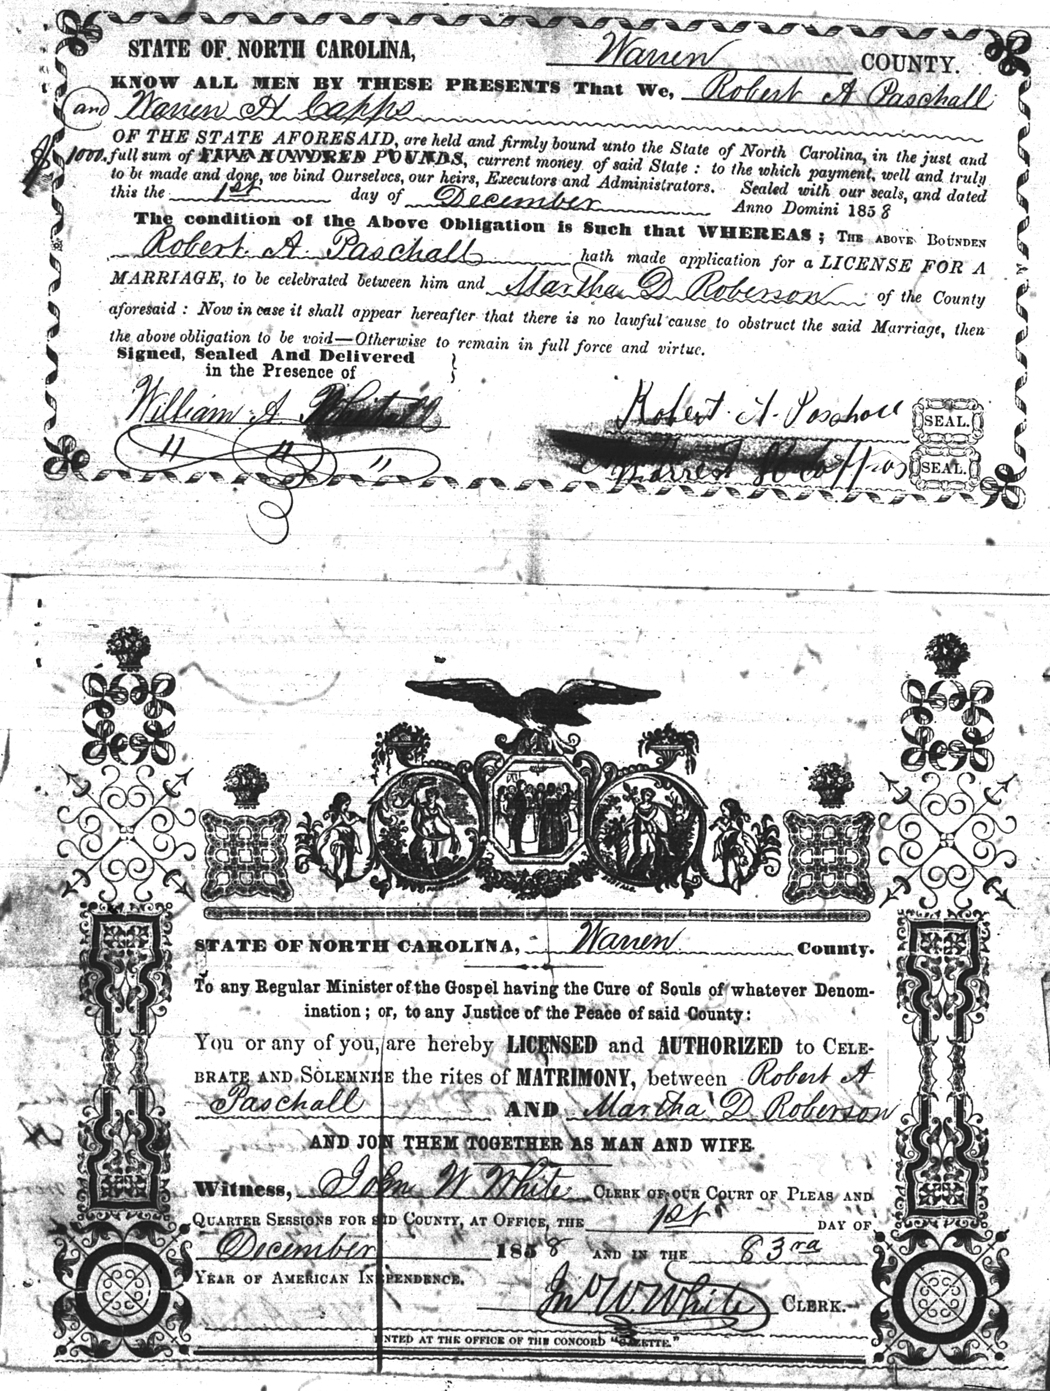 STATE OF NORTH CAROLINA, Warren COUNTY.
KNOW ALL MEN BY THESE PRESENTS That We, Robert A Paschall
and Warren H Capps
OF THE STATE AFORESAID, are held and firmly bound unto the State of North Carolina, in the just and
$1000. full sum of FIVE HUNDRED POUNDS, current money of said State: to the which payment, well and truly
to be made and done, we bind Ourselves, our heirs, Executors and Administrators. Sealed with our seals, and dated
this the 1st day of December Anno Domini 1858
The condition of the Above Obligation is Such that WHEREAS; THE ABOVE BOUNDEN
Robert A. Paschall hath made application for a LICENSE FOR A
MARRIAGE, to be celebrated between him and Martha D Roberson of the County
aforesaid: Now in case it shall appear hereafter that there is no lawful cause to obstruct the said Marriage, then
the above obligation to be void—Otherwise to remain in full force and virtue.
Signed, Sealed And Delivered
in the Presence of
William A
Robert A Paschall SEAL.
SEAL.
STATE OF NORTH CAROLINA, Warren County.
To any Regular Minister of the Gospel having the Cure of Souls of whatever Denom-
ination; or, to any Justice of the Peace of said County:
You or any of you, are hereby LICENSED and AUTHORIZED to CELE-
BRATE AND SOLEMNIZE the rites of MATRIMONY, between Robert A
Paschall AND Martha D Roberson
AND JOIN THEM TOGETHER AS MAN AND WIFE.
Witness, John W White CLERK OF OUR COURT OF PLEAS AND
QUARTER SESSIONS FOR SAID COUNTY, AT OFFICE, THE 1st DAY OF
December 1858 AND IN THE 83rd
YEAR OF AMERICAN INDEPENDENCE.
Jno W. White CLERK.
PRINTED AT THE OFFICE OF THE CONCORD "GAZETTE."